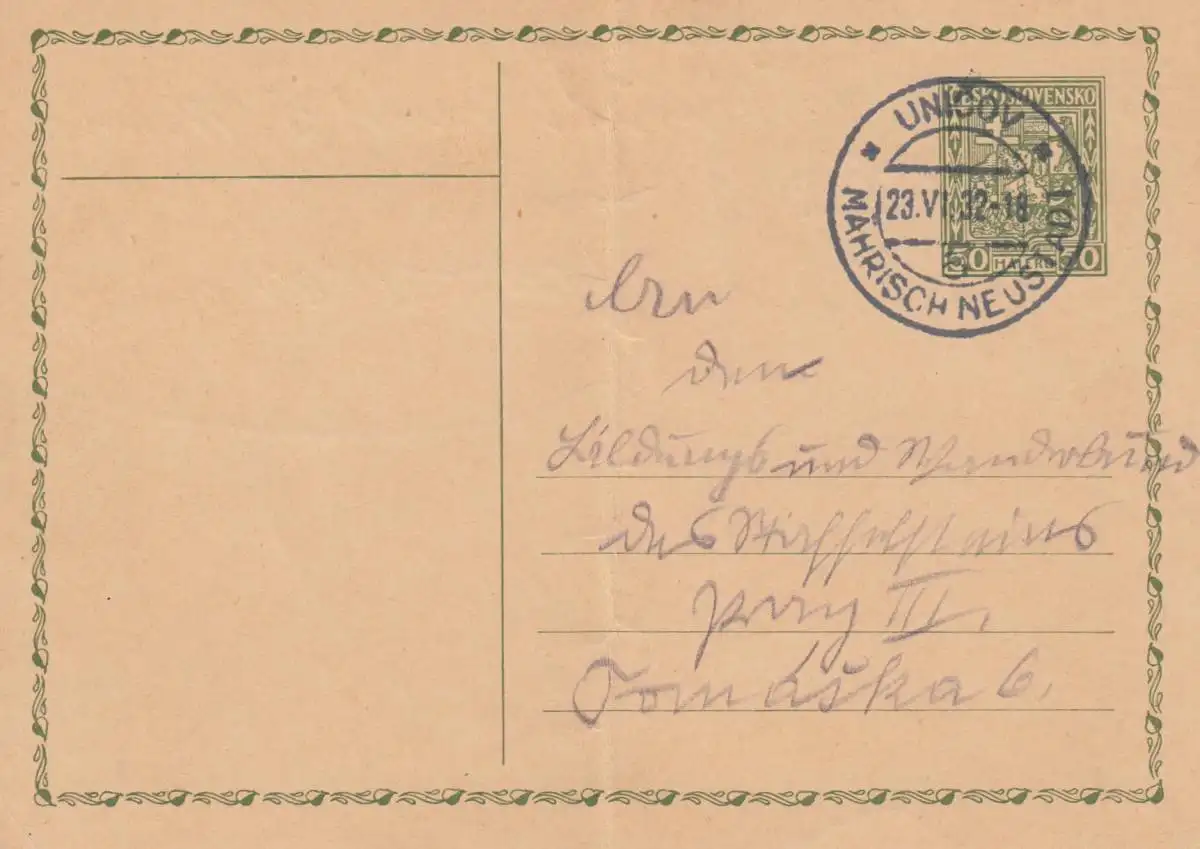 ČESKOSLOVENSKO
UNIČOV
23.VI.32-18
50 HALÉŘŮ 50
5
MÄHRISCH NEUSTADT
An
den
Bildungs und Wanderbund
des
Prag III.
Tomáška 6.